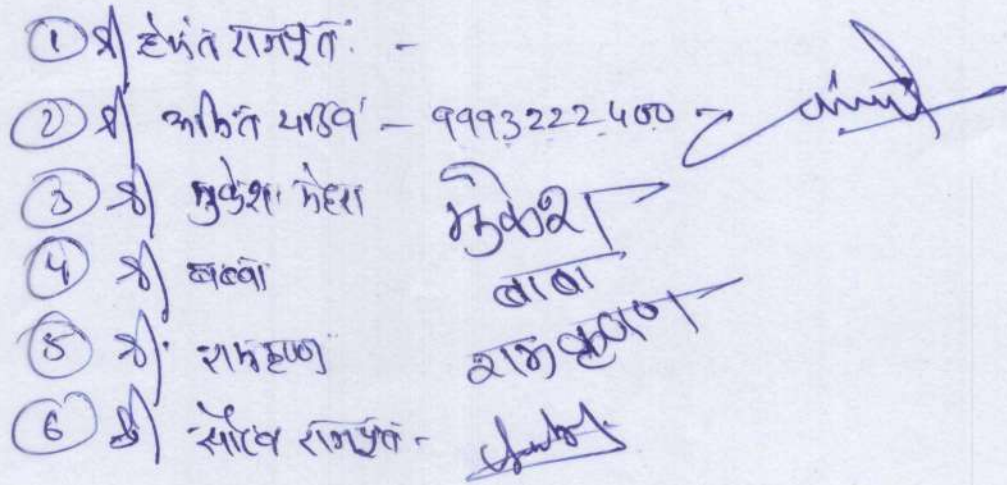 ① श्री हेमंत राजपूत -
② श्री अमित यादव - 9993222400 -
③ श्री मुकेश मेहरा मुकेश
④ श्री बब्बा बाबा
⑤ श्री रामकृष्ण रामकृष्ण
⑥ श्री सौरव राजपूत -